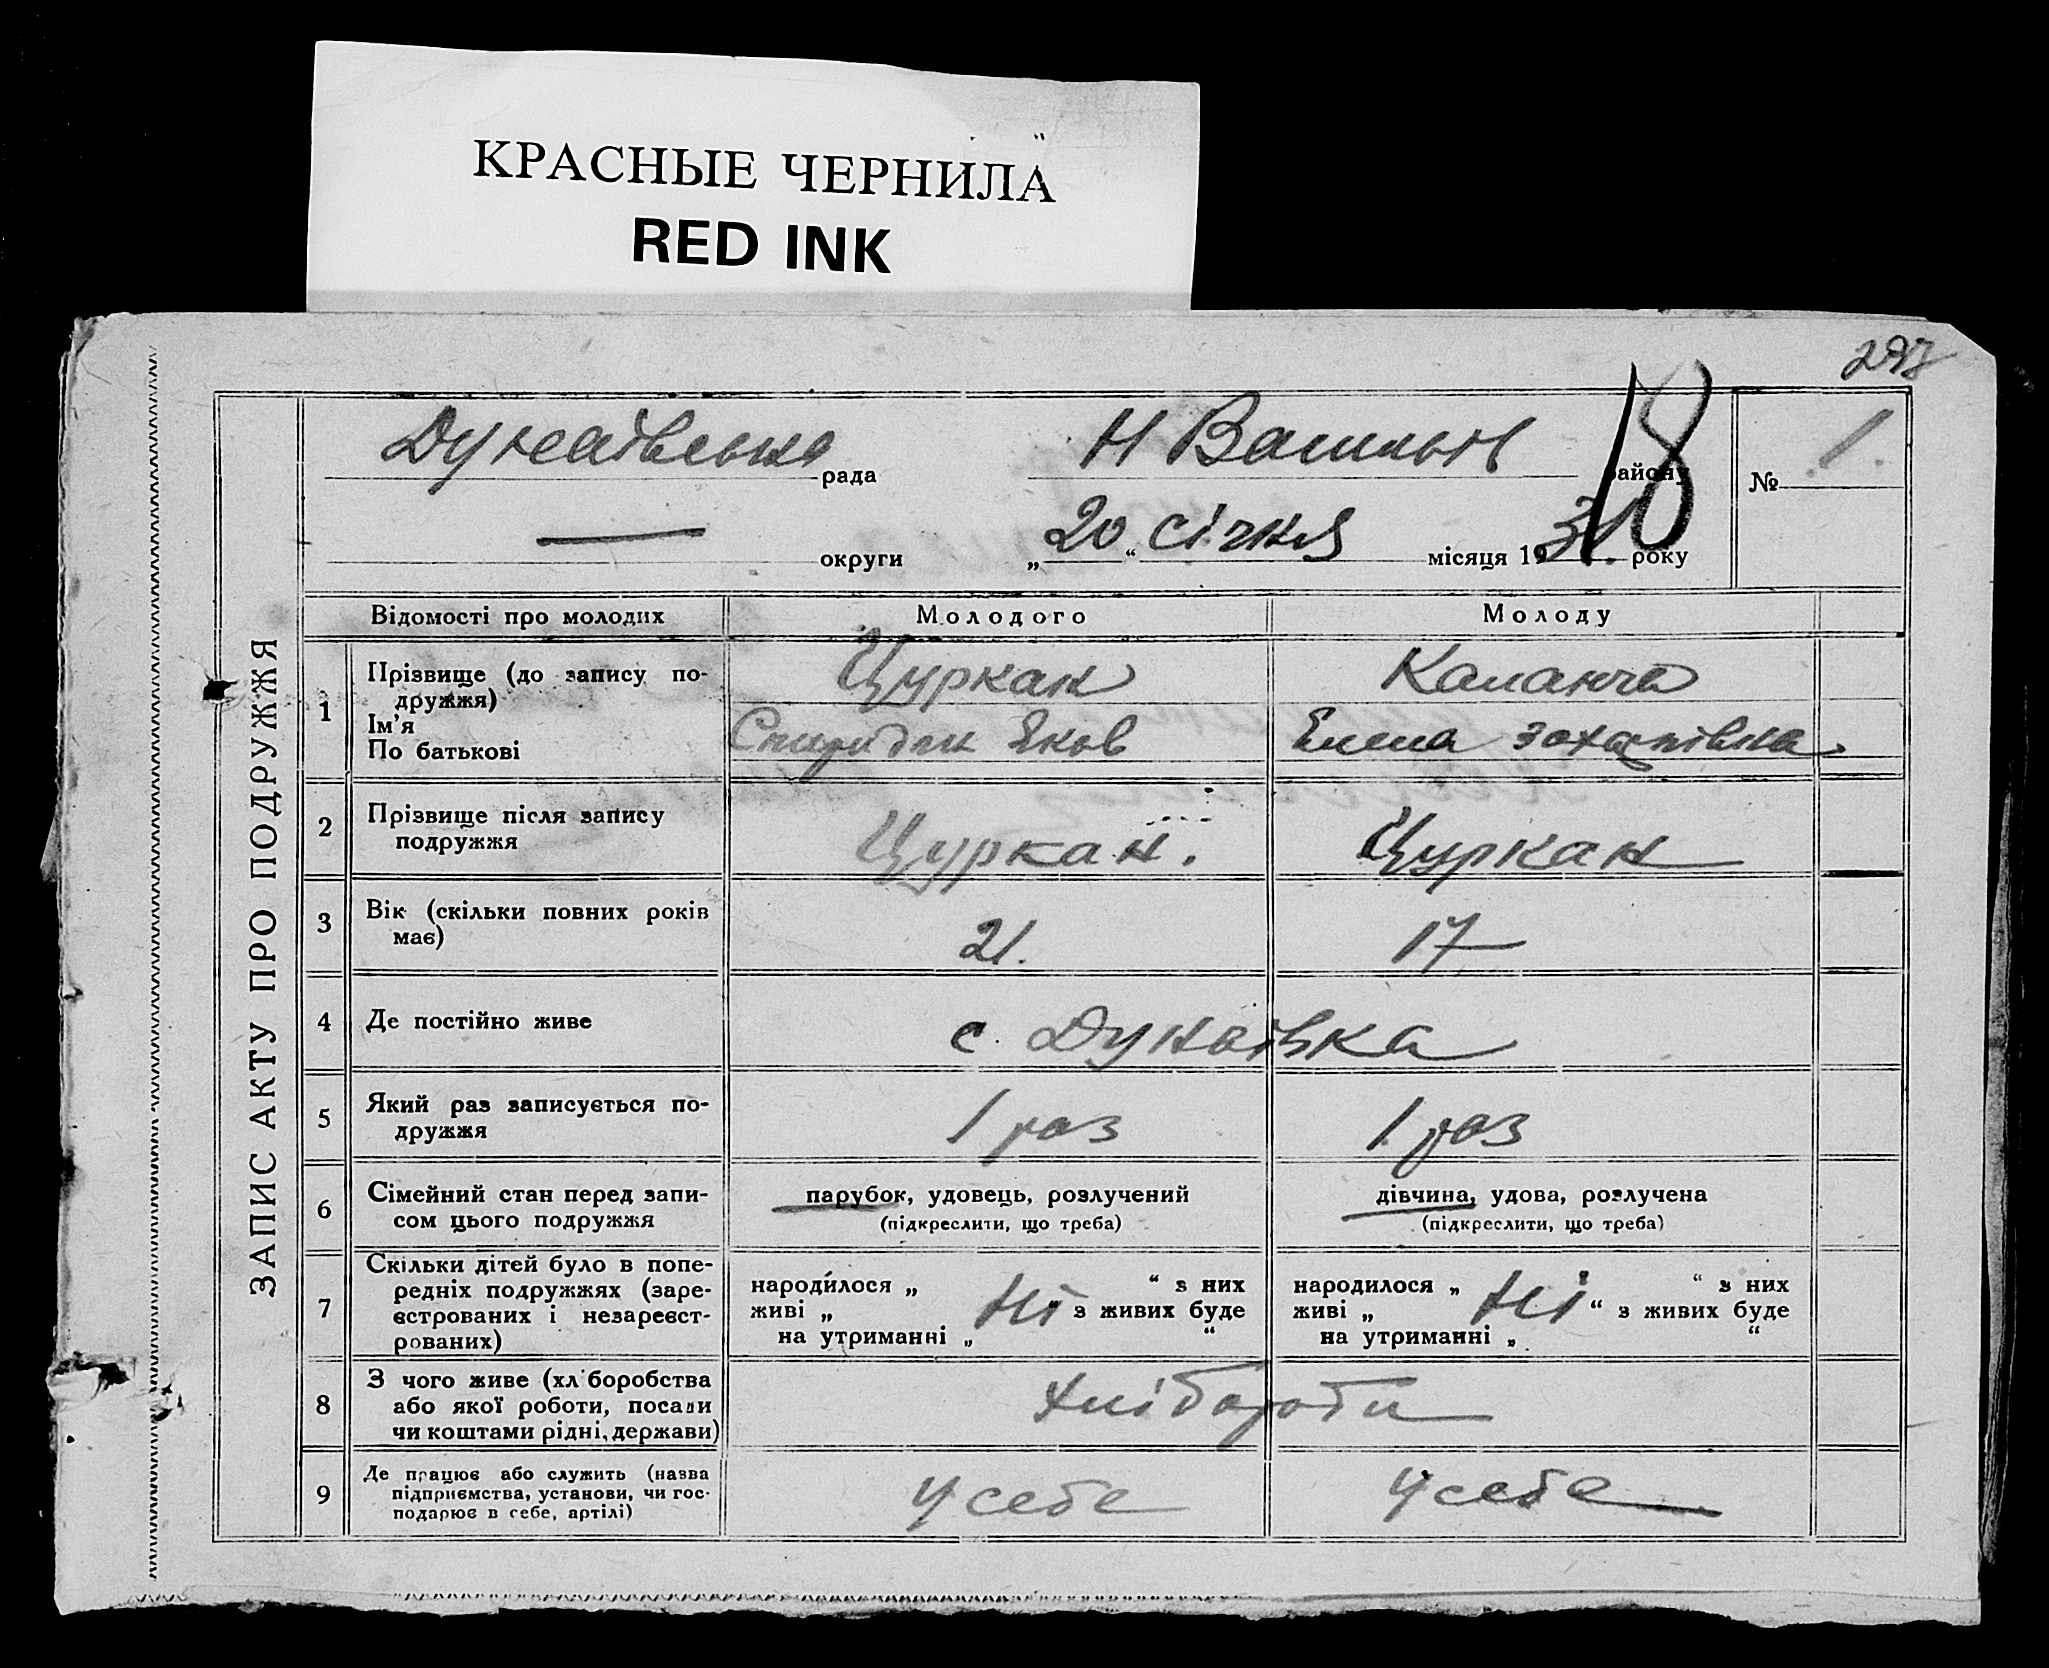 КРАСНЫЕ ЧЕРНИЛА
RED INK
297
18
Дунаївська рада
Н Василів району
№ 1.
— округи
„20“ січня місяця 1931 року
ЗАПИС АКТУ ПРО ПОДРУЖЖЯ
Відомості про молодих
Молодого
Молоду
1
Прізвище (до запису по-
дружжя)
Ім'я
По батькові
Цуркан
Спиридон Яков
Каланча
Елена Захарівна
2
Прізвище після запису
подружжя
Цуркан.
Цуркан
3
Вік (скільки повних років
має)
21.
17
4
Де постійно живе
с. Дунаївка
5
Який раз записується по-
дружжя
1 раз
1 раз
6
Сімейний стан перед запи-
сом цього подружжя
парубок, удовець, розлучений
(підкреслити, що треба)
дівчина, удова, розлучена
(підкреслити, що треба)
7
Скільки дітей було в попе-
редніх подружжях (заре-
єстрованих і незареєст-
рованих)
народилося „ “ з них
живі „ Ні “ з живих буде
на утриманні „ “
народилося „ “ з них
живі „ Ні “ з живих буде
на утриманні „ “
8
З чого живе (хліборобства
або якої роботи, посади
чи коштами рідні, держави)
Хлібороби
9
Де працює або служить (назва
підприємства, установи, чи гос-
подарює в себе, артілі)
У себе
У себе